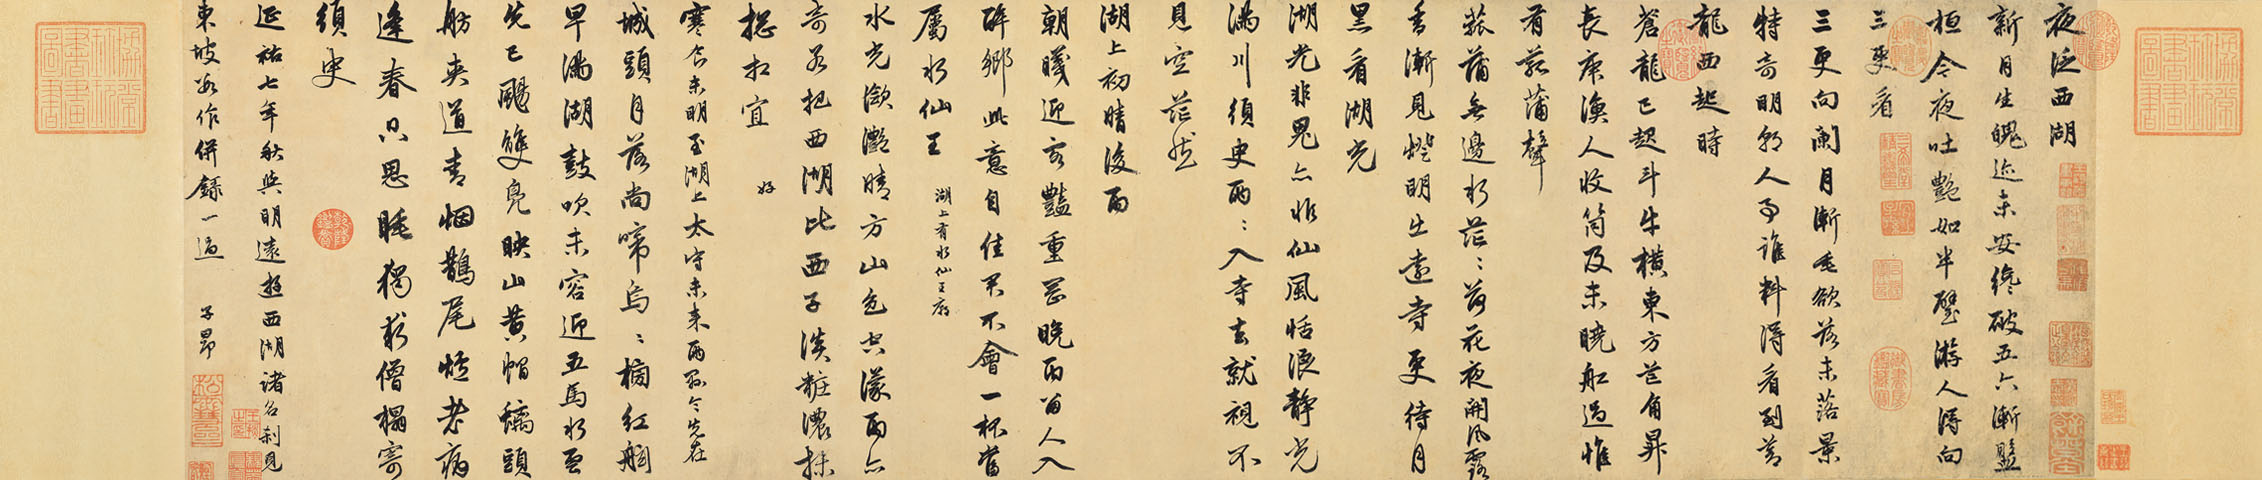 夜泛西湖
新月生魄迹未安纔破五六漸盤
桓今夜吐艷如半璧游人得向
三更看
三更向闌月漸垂欲落未落景
特奇明朝人事誰料得看到蒼
龍西起時
蒼龍已起斗牛橫東方芒角昇
長庚漁人收筒及未曉船過惟
有菰蒲聲
菰蒲無邊水茫〻荷花夜開風露
香漸見燈明出遠寺更待月
黑看湖光
湖光非鬼亦非仙風恬浪靜光
滿川須臾兩〻入寺去就視不
見空茫然
湖上初晴後雨
朝曦迎客豔重岡晚雨留人入
醉鄉此意自佳君不會一杯當
屬水仙王 湖上有水仙王廟
水光瀲灧晴方好山色空濛雨亦
奇若把西湖比西子淡粧濃抹
揔相宜
寒食未明至湖上太守未來兩縣令先在
城頭月落尚啼烏〻榜紅舷
早滿湖鼓吹未容迎五馬水雲
先已颺雙鳧映山黃帽螭頭
舫夾道青烟鵲尾爐老病
逢春只思睡獨求僧榻寄
須臾
延祐七年秋與明遠遊西湖諸名刹見
東坡此作併錄一過 子昂